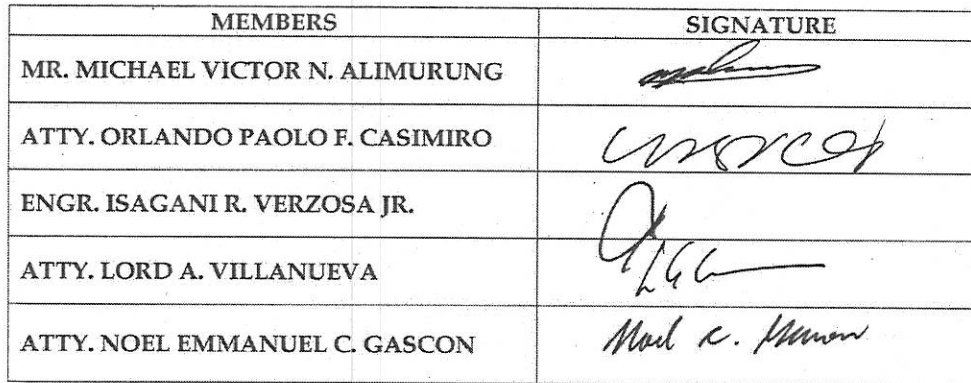 MEMBERS SIGNATURE
MR. MICHAEL VICTOR N. ALIMURUNG
ATTY. ORLANDO PAOLO F. CASIMIRO
ENGR. ISAGANI R. VERZOSA JR.
ATTY. LORD A. VILLANUEVA
ATTY. NOEL EMMANUEL C. GASCON